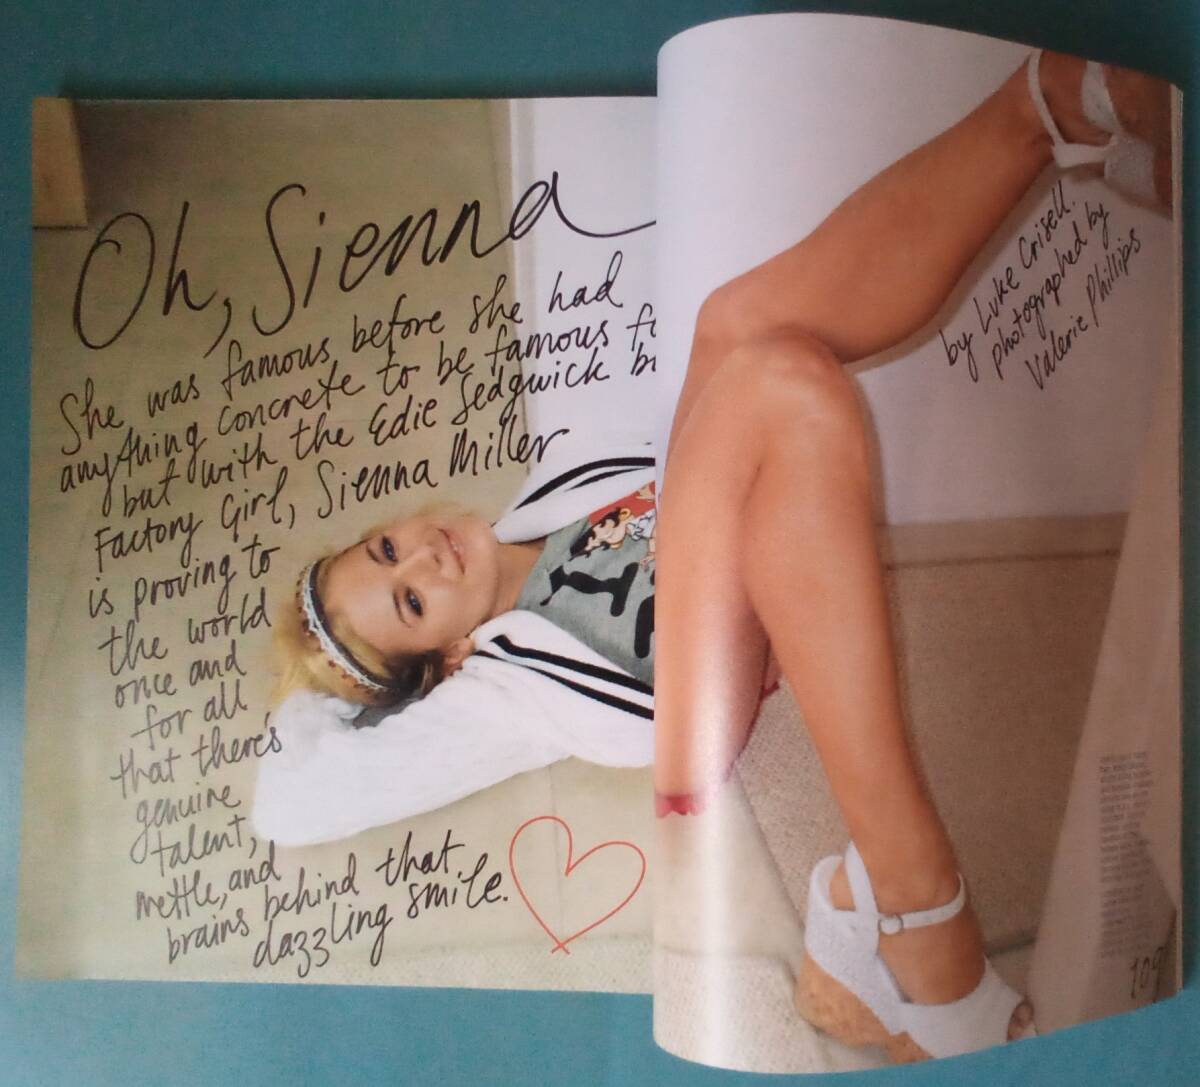 Oh, Sienna
She was famous before she had
anything concrete to be famous fo
but with the Edie Sedgwick bi
Factory Girl, Sienna Miller
is proving to
the world
once and
for all
that there's
genuine
talent,
mettle, and
brains behind that
dazzling smile.
by Luke Crisell.
photographed by
Valerie Phillips
109